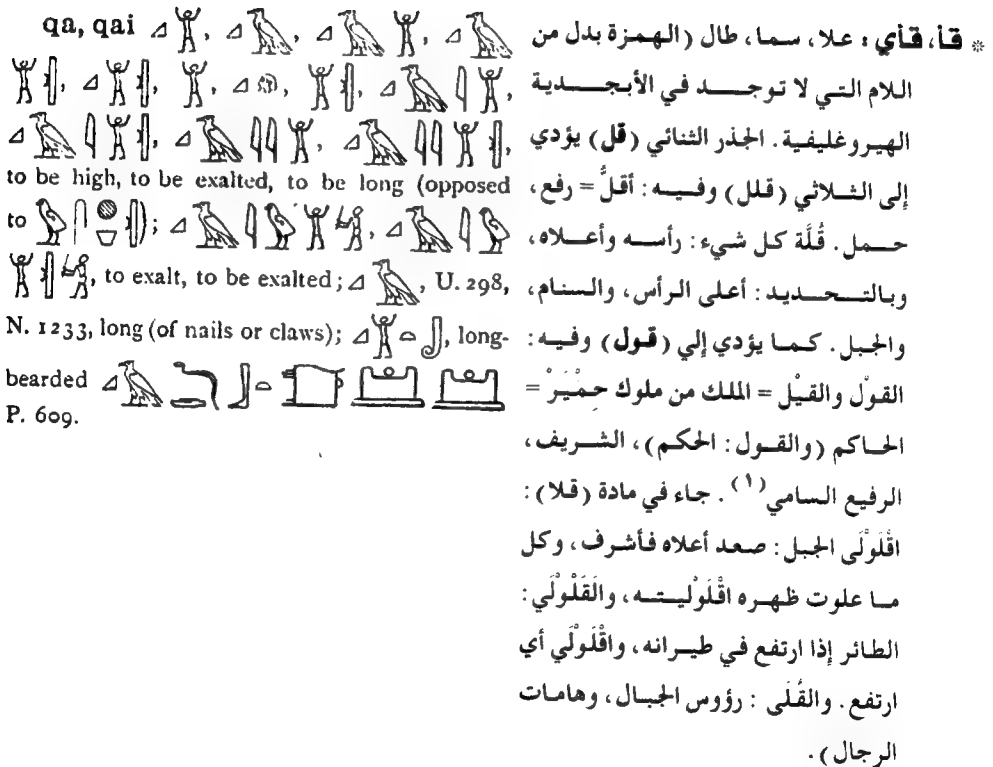 qa, qai 𓈎𓀠, 𓈎𓄿, 𓈎𓄿𓀠, 𓈎𓄿
𓀠𓛗, 𓈎𓀠, 𓀠, 𓈎, 𓀠, 𓈎𓄿𓇋𓀠,
𓈎𓄿𓇋𓀠, 𓈎𓄿𓇋𓇋𓀠, 𓈎𓄿𓇋𓇋𓀠,
to be high, to be exalted, to be long (opposed
to 𓅱𓋴𓐍); 𓈎𓄿𓇋𓅱𓀠𓀜, 𓈎𓄿𓇋𓅱
𓀠𓀜, to exalt, to be exalted; 𓈎𓄿, U. 298,
N. 1233, long (of nails or claws); 𓈎𓀠𓏏, long-
bearded 𓈎𓄿𓆓𓃀𓏏
P. 609.
* قأ، قأي : علا، سما، طال (الهمزة بدل من
اللام التي لا توجد في الأبجدية
الهيروغليفية. الجذر الثنائي (قل) يؤدي
إلى الثلاثي (قلل) وفيه : أقلُّ = رفع،
حمل. قُلَّة كل شيء : رأسه وأعلاه،
وبالتحديد : أعلى الرأس، والسنام،
والجبل. كما يؤدي إلي (قول) وفيه :
القوْل والقيْل = الملك من ملوك حِمْيَرْ =
الحاكم (والقول : الحكم)، الشريف،
الرفيع السامي(١). جاء في مادة (قلا) :
اقْلَوْلَى الجبل : صعد أعلاه فأشرف، وكل
ما علوت ظهره اقْلَوْليته، والقَلَوْلَي :
الطائر إذا ارتفع في طيرانه، واقْلَوْلَي أي
ارتفع. والقُلَى : رؤوس الجبال، وهامات
الرجال).